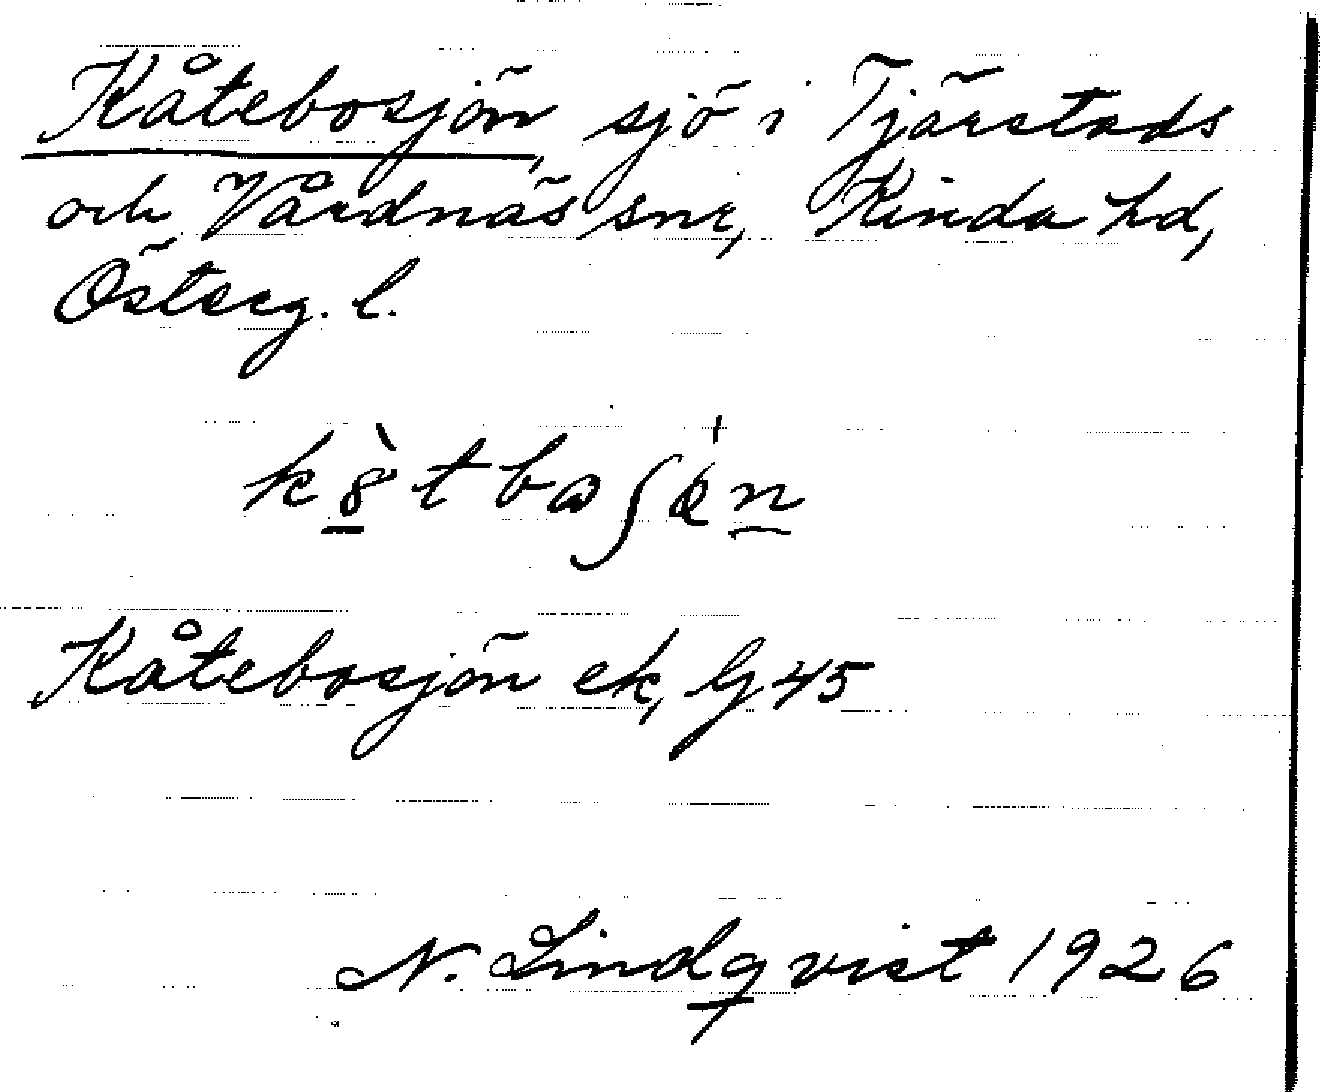 Kåtebosjön, sjö i Tjärstads
och Vårdnäs snr, Kinda hd,
Österg. l.
Kåtebosjön ek, G 45
N. Lindqvist 1926